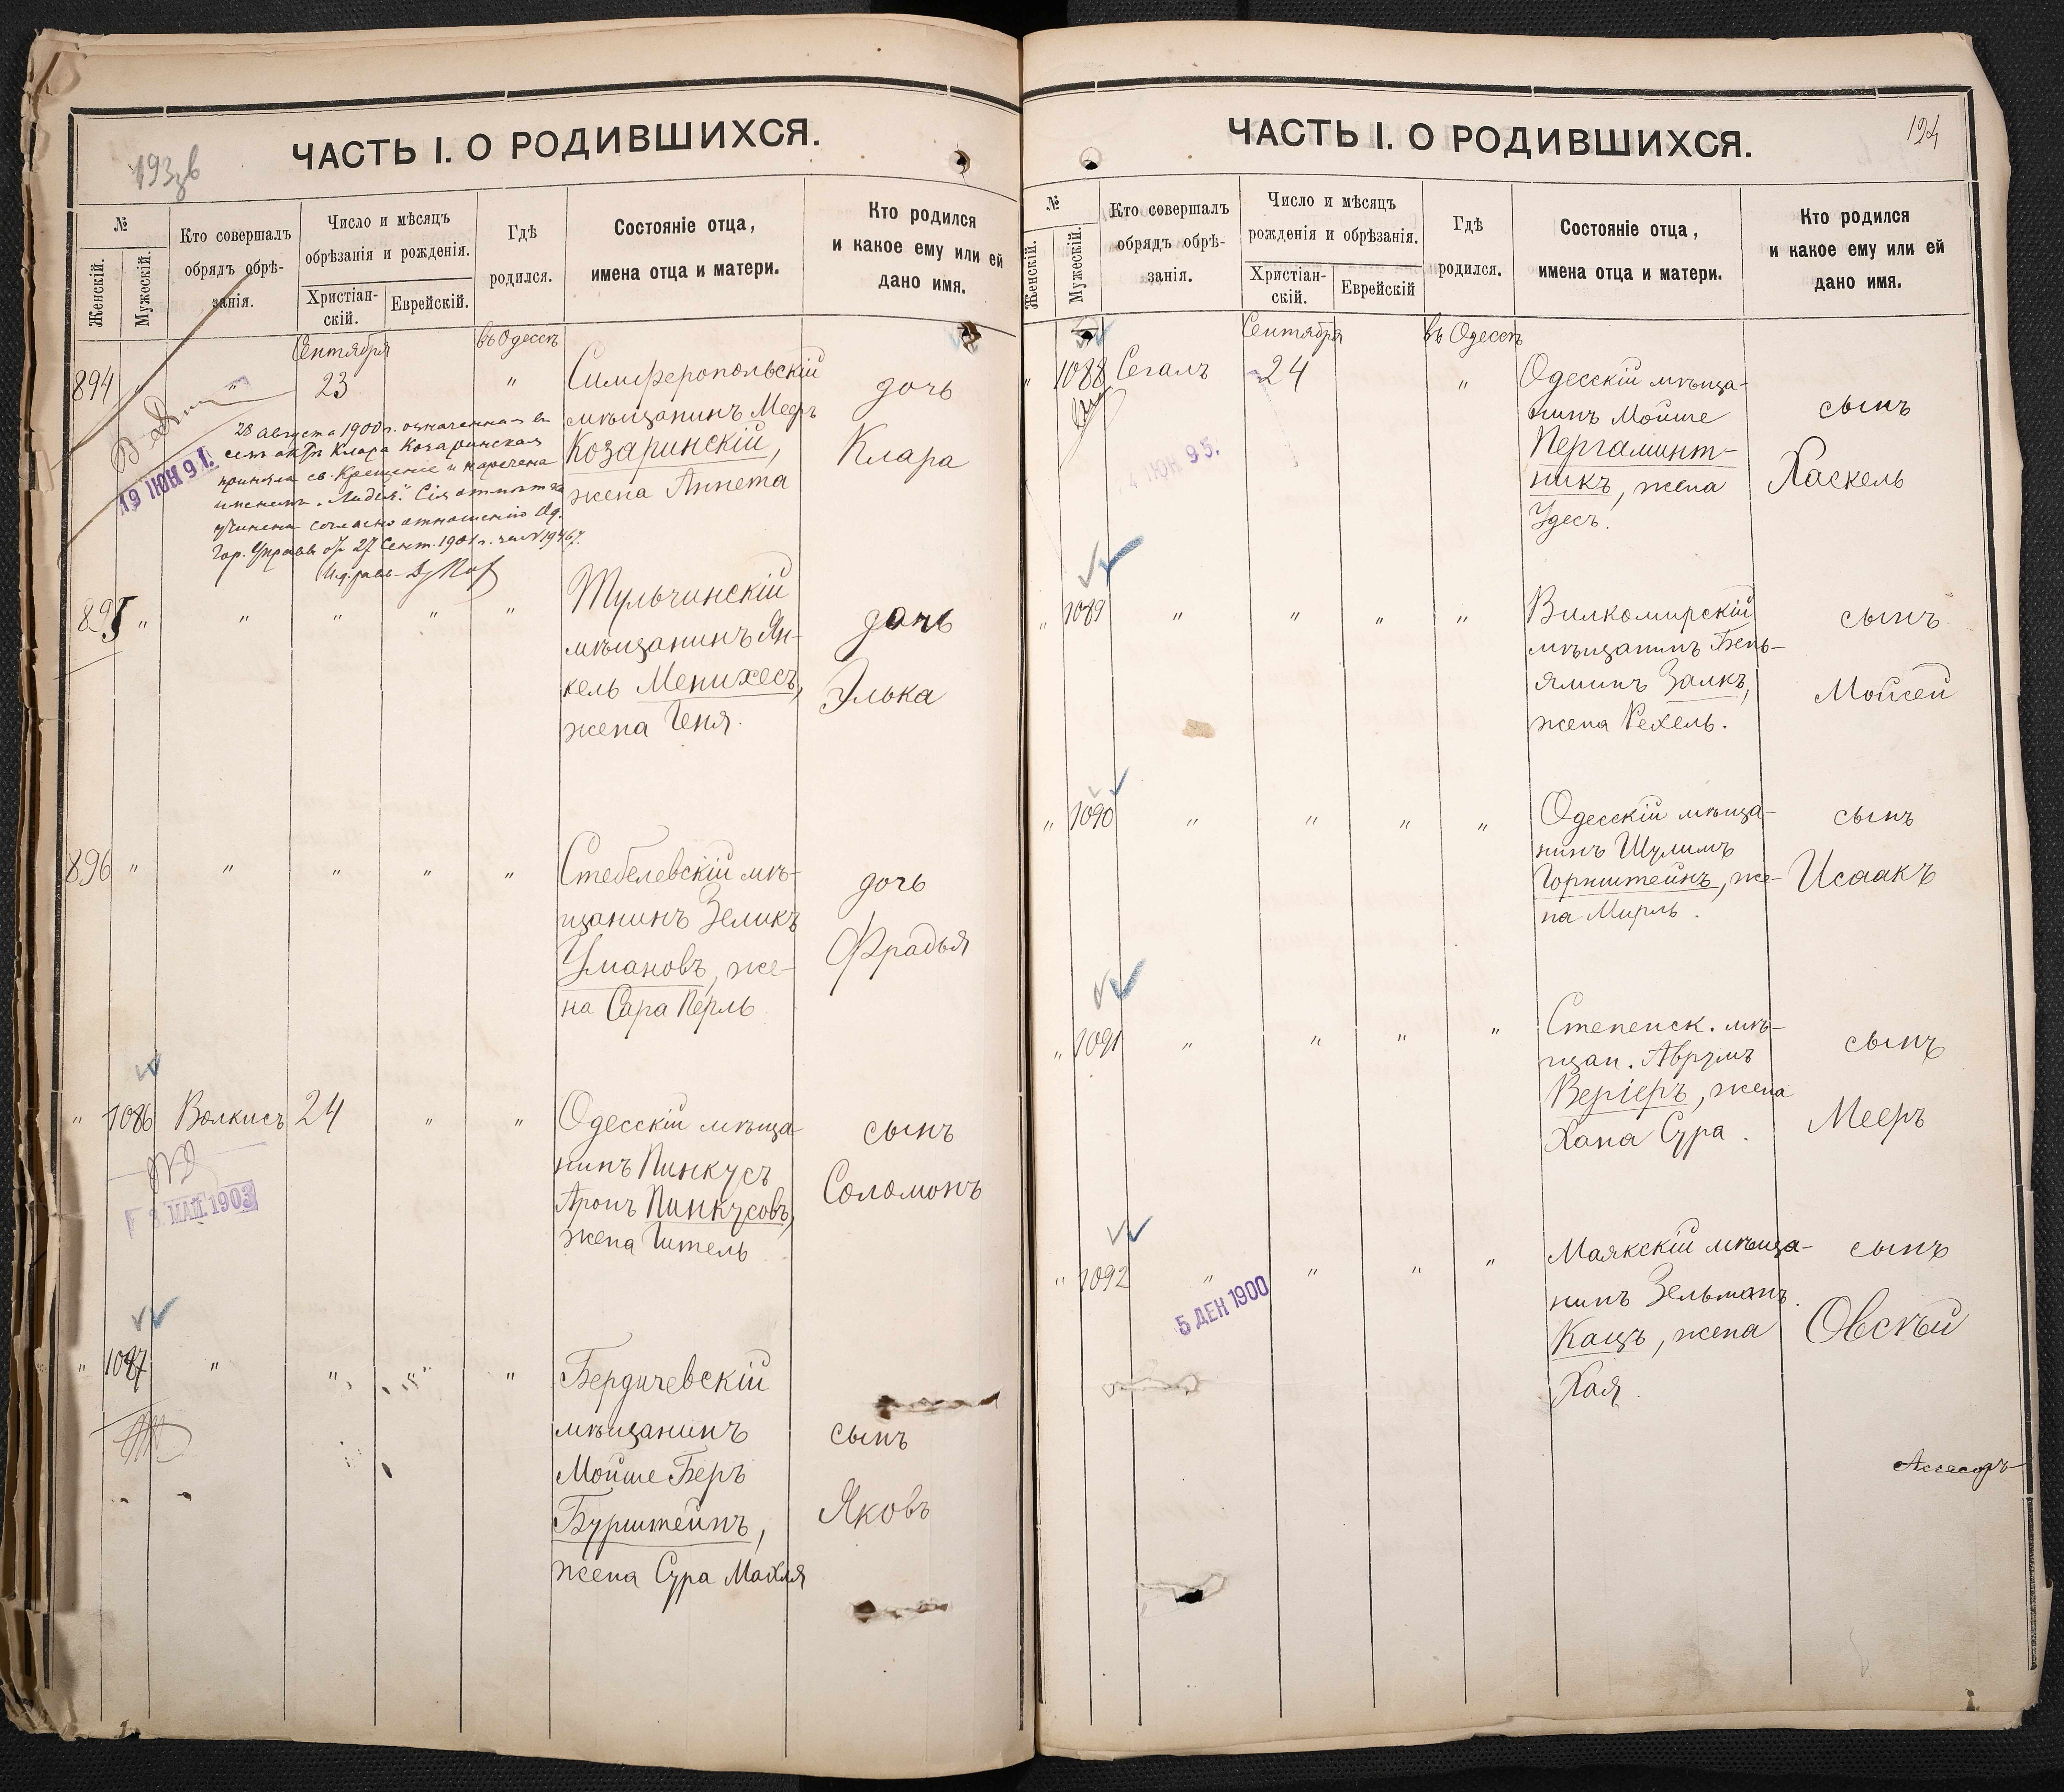 ЧАСТЬ I. О РОДИВШИХСЯ.
№
Женскій.
Мужескій.
Кто совершалъ
обрядъ обрѣ-
занія.
Число и мѣсяцъ
обрѣзанія и рожденія.
Христіан-
скій.
Еврейскій.
Гдѣ
родился.
Состояніе отца,
имена отца и матери.
Кто родился
и какое ему или ей
дано имя.
Сентября
въ Одессѣ
894 " " 23 "
Симферопольскій
мѣщанинъ Мееръ
Козаринскій,
жена Аннета
дочь
Клара
28 августа 1900 г. означенная въ
семъ актѣ Клара Козаринская
приняла св. Крещеніе и наречена
именемъ „Лидія". Сія отмѣтка
учинена согласно отношенію Од.
Гор. Управы отъ 27 Сент. 1901 г. за № 19467.
19 ІЮН 91.
895 " " " " "
Тульчинскій
мѣщанинъ Ян-
кель Менихесъ,
жена Геня.
дочь
Элька
896 " " " " "
Стебелевскій мѣ-
щанинъ Зеликъ
Умановъ, же-
на Сара Перль
дочь
Фрадья
" 1086 Волкисъ 24 " "
Одесскій мѣща-
нинъ Пинкусъ
Аронъ Пинкусовъ,
жена Гитель
сынъ
Соломонъ
МАЙ 1903
" 1087 " " " "
Бердичевскій
мѣщанинъ
Мойше Беръ
Бурштейнъ,
жена Сура Махля
сынъ
Яковъ
ЧАСТЬ I. О РОДИВШИХСЯ.
194
№
Женскій.
Мужескій.
Кто совершалъ
обрядъ обрѣ-
занія.
Число и мѣсяцъ
рожденія и обрѣзанія.
Христіан-
скій.
Еврейскій
Гдѣ
родился.
Состояніе отца,
имена отца и матери.
Кто родился
и какое ему или ей
дано имя.
Сентября
въ Одессѣ
" 1088 Сегалъ 24 "
Одесскій мѣща-
нинъ Мойше
Пергаминт-
никъ, жена
Удесъ.
сынъ
Хаскель
ІЮН 95.
" 1089 " " " "
Вилкомирскій
мѣщанинъ Бень-
яминъ Залкъ,
жена Рехель.
сынъ
Мойсей
" 1090 " " " "
Одесскій мѣща-
нинъ Шулимъ
Горнштейнъ, же-
на Мирль.
сынъ
Исаакъ
" 1091 " " " "
Степенск. мѣ-
щан. Аврумъ
Верiеръ, жена
Хана Сура.
сынъ
Мееръ
" 1092 " " " "
Маякскій мѣща-
нинъ Зельманъ
Кацъ, жена
Хая.
сынъ
Овсѣй
5 ДЕК 1900